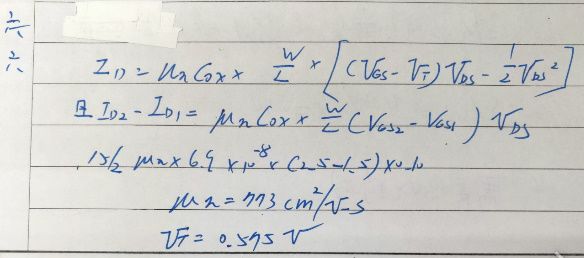 二
六
六
I_D = μn Cox × W/L × [(V_GS - V_T) V_DS - 1/2 V_DS²]
且 I_D2 - I_D1 = μn Cox × W/L (V_GS2 - V_GS1) V_DS
15/2 μn × 6.9 × 10^-8 × (2.5-1.5) × 0.10
μn = 773 cm²/V-S
V_T = 0.575 V